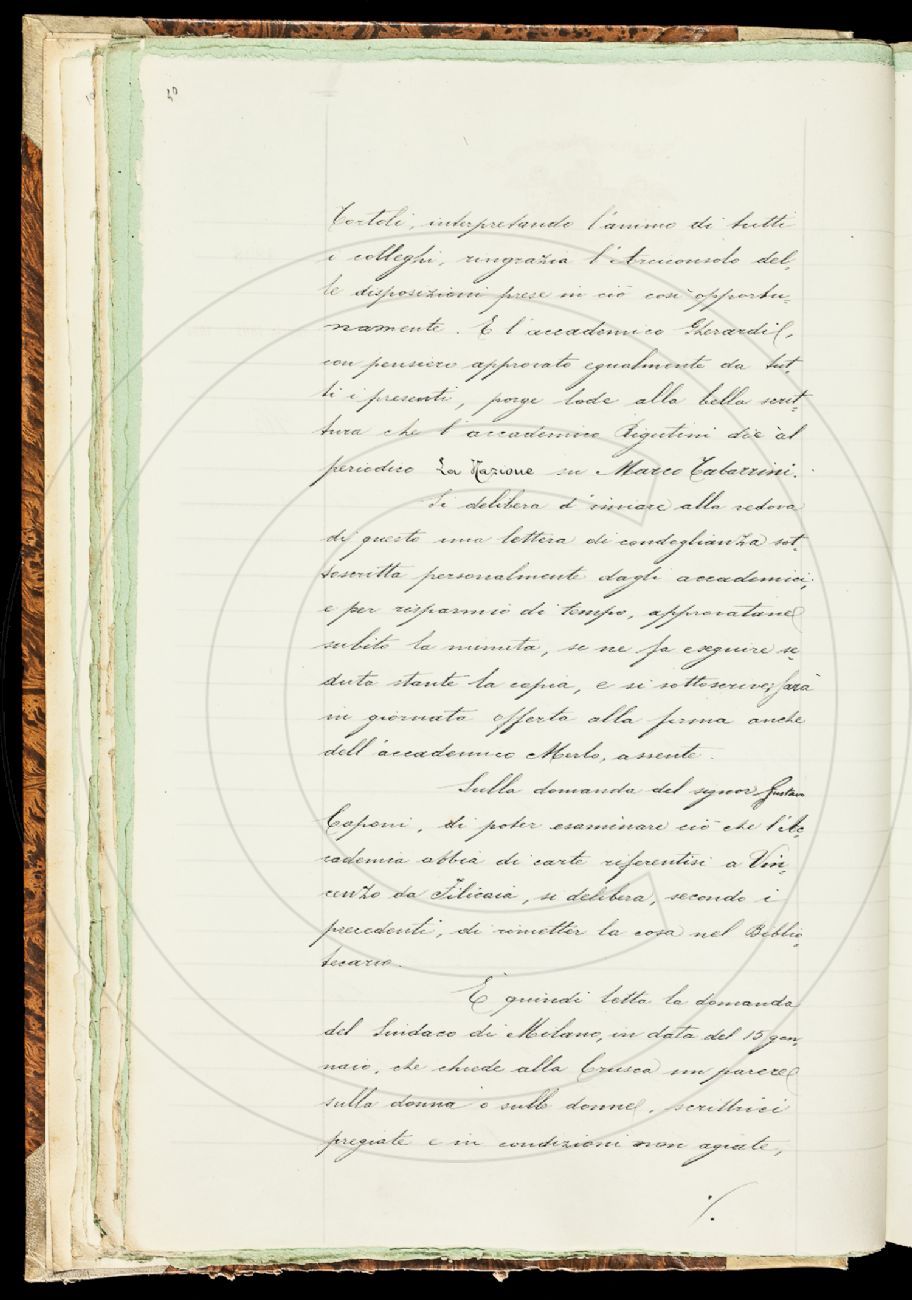 20
Tortoli, interpretando l'animo di tutti
i colleghi, ringrazia l'Arciconsolo del-
le disposizioni prese in ciò così opportu-
namente. E l'accademico Gherardi,
con pensiero approvato egualmente da tut-
ti i presenti, porge lode alla bella scrit-
tura che l'accademico Rigutini diè al
periodico La Nazione su Marco Tabarrini.
Si delibera d'inviare alla vedova
di questo una lettera di condoglianza sot-
toscritta personalmente dagli accademici;
e per risparmio di tempo, approvatane
subito la minuta, se ne fa eseguire se-
duta stante la copia, e si sottoscrive; sarà
in giornata offerta alla firma anche
dell'accademico Merlo, assente.
Sulla domanda del signor Gustavo
Caponi, di poter esaminare ciò che l'Ac-
cademia abbia di carte riferentisi a Vin-
cenzo da Filicaia, si delibera, secondo i
precedenti, di rimetter la cosa nel Biblio-
tecario.
È quindi letta la domanda
del Sindaco di Milano, in data del 15 gen-
naio, che chiede alla Crusca un parere
sulla donna o sulle donne, scrittrici
pregiate e in condizioni non agiate,
./.